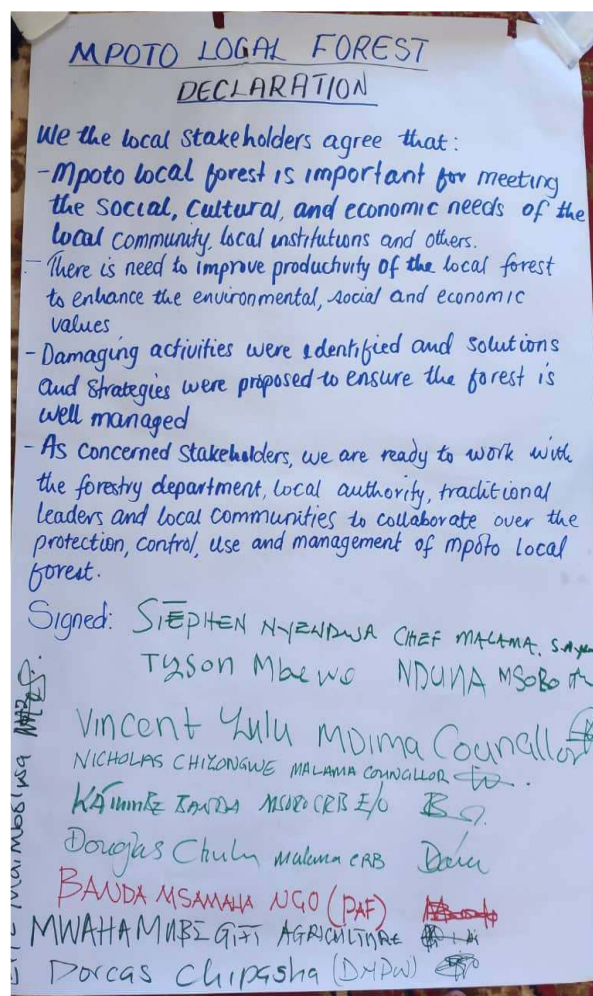 MPOTO LOCAL FOREST
DECLARATION
We the local stakeholders agree that:
- Mpoto local forest is important for meeting
the social, cultural, and economic needs of the
local community, local institutions and others.
- There is need to improve productivity of the local forest
to enhance the environmental, social and economic
values
- Damaging activities were identified and solutions
and strategies were proposed to ensure the forest is
well managed
- As concerned stakeholders, we are ready to work with
the forestry department, local authority, traditional
leaders and local communities to collaborate over the
protection, control, use and management of mpoto local
forest.
Signed: STEPHEN NYENDWA CHEF MALAMA.
Tyson Mbewe NDUNA MSORO
Vincent Zulu MDIMA Councillor
NICHOLAS CHIZONGWE MALAMA COUNCILLOR
BANDA MSORO CRB E/O
Douglas Chulu Malama CRB
BANDA MSAMAHA NGO (PAF)
GIFT AGRICULTURE
Dorcas Chipasha (DNPW)